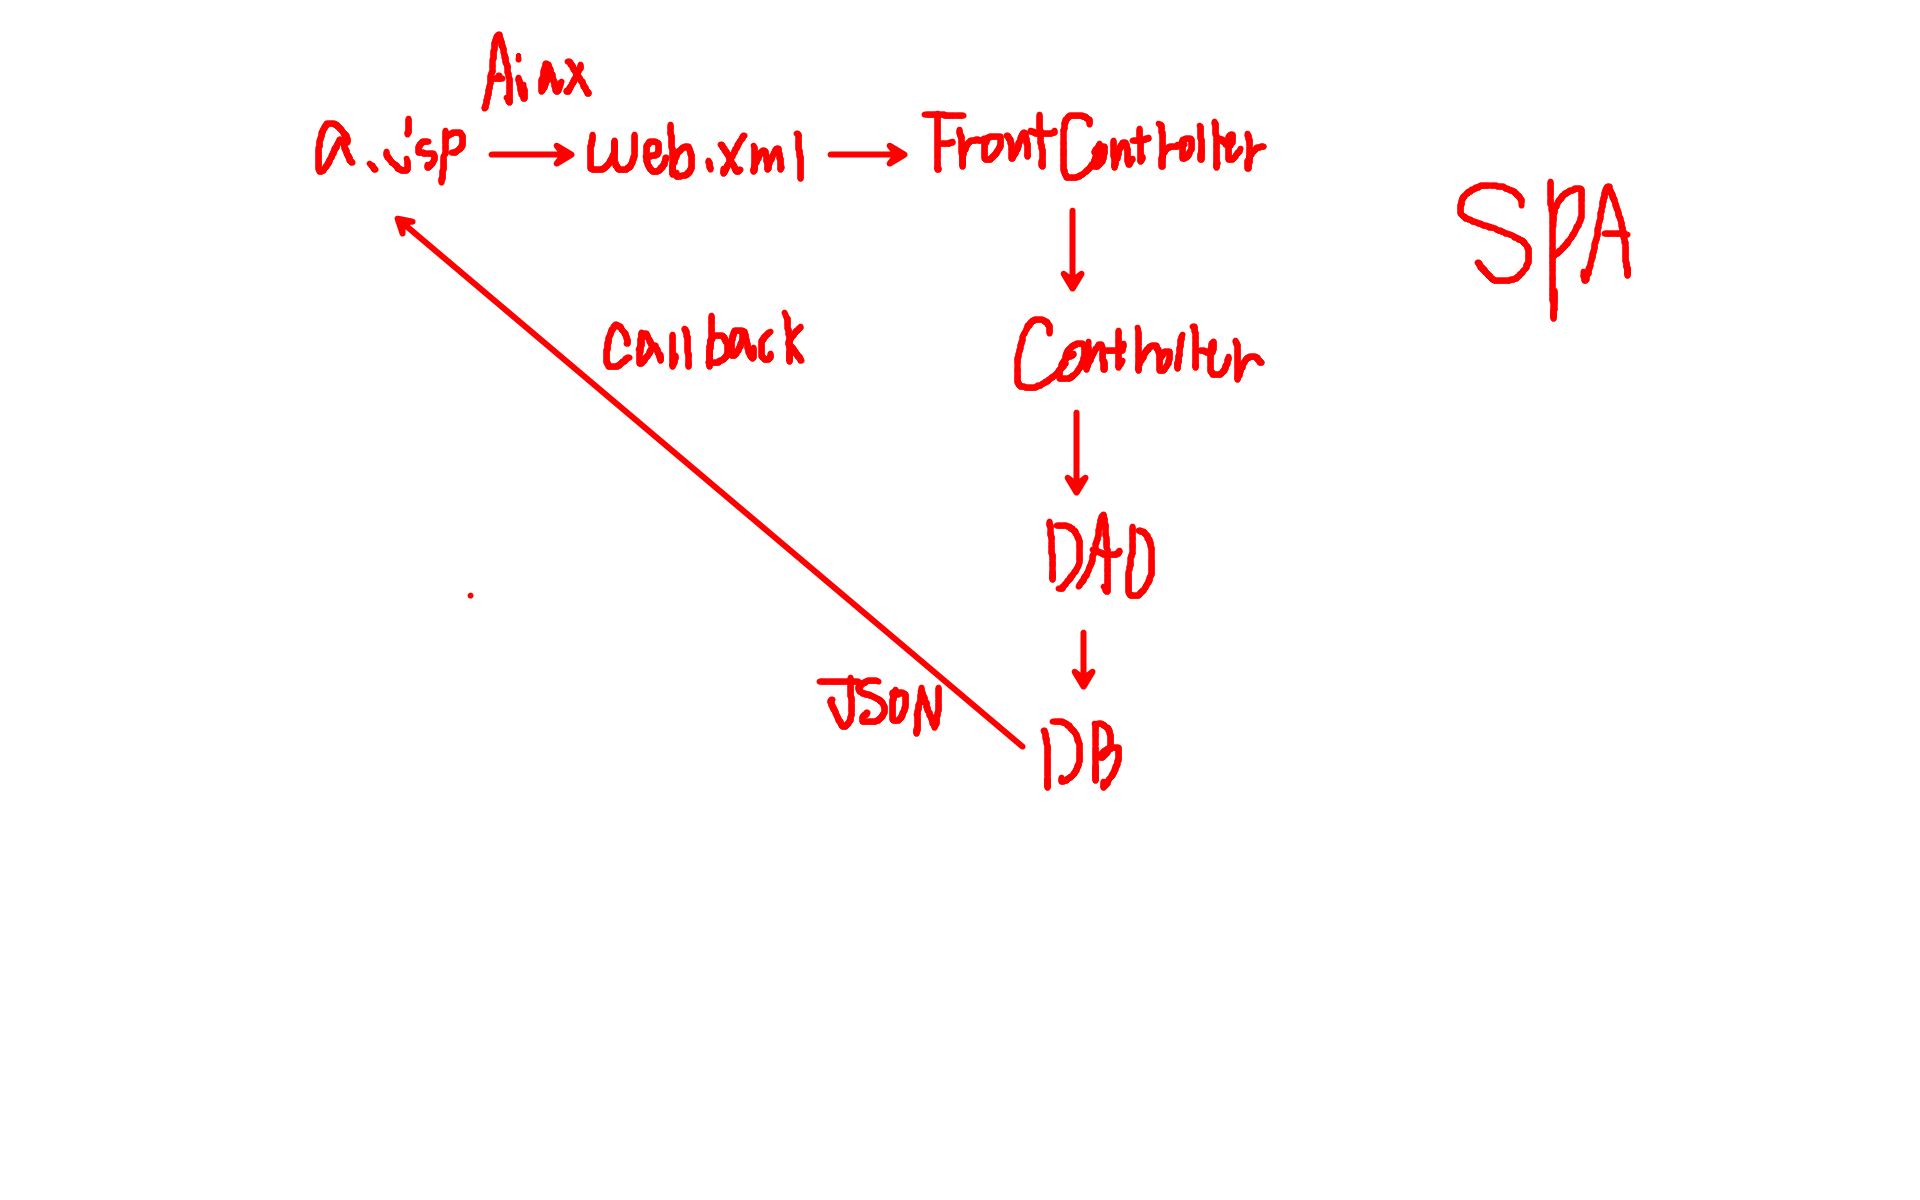 Ajax
a.jsp → web.xml → FrontController
SPA
callback
Controller
DAO
JSON
DB